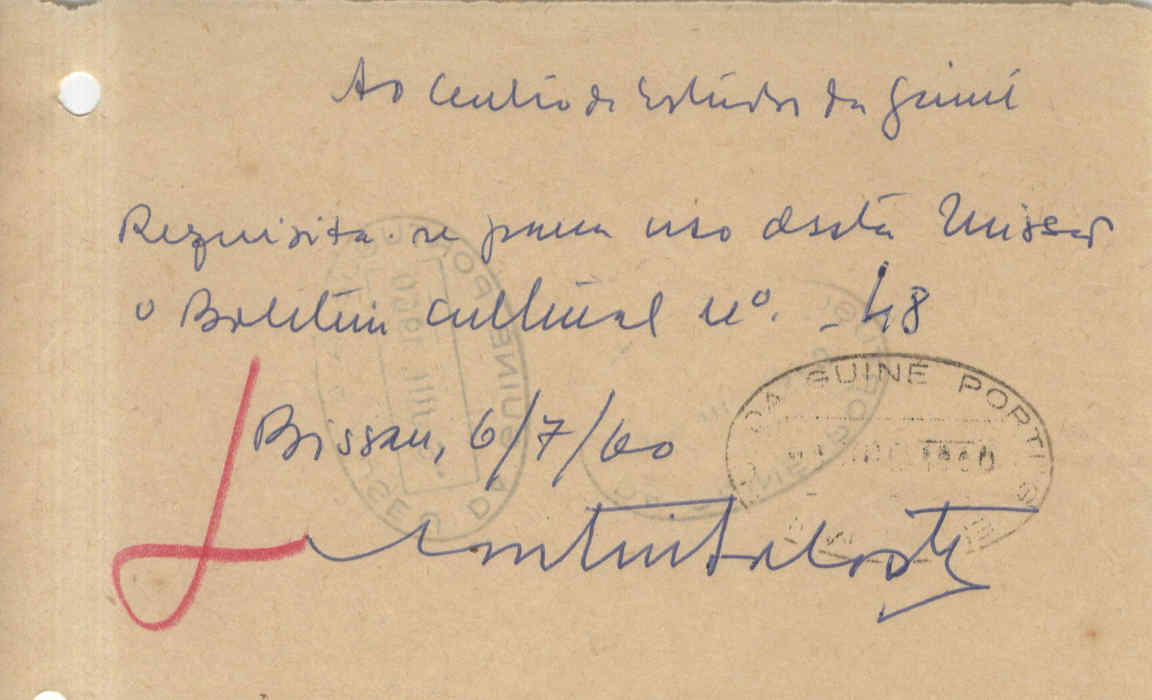 Ao Centro de Estudos da Guiné
Requisita-se para uso desta Missão
o Boletim Cultural nº. 48
Bissau, 6/7/60
DA GUINÉ PORT